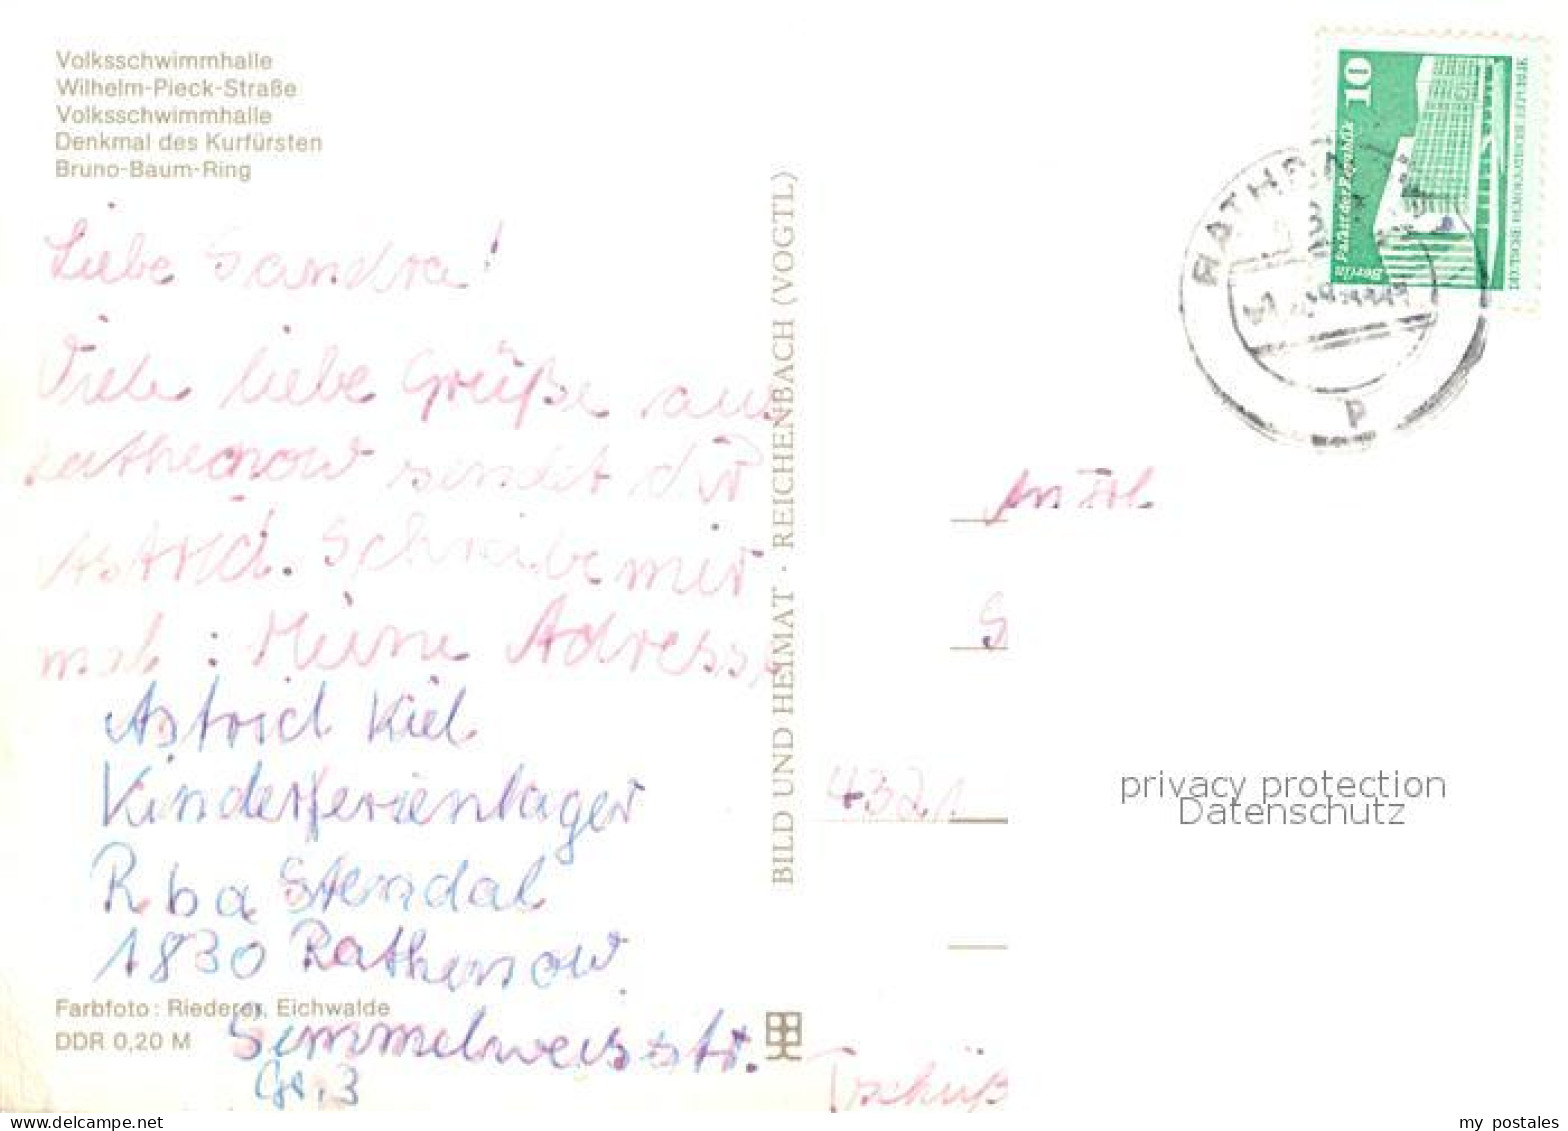 Volksschwimmhalle
Wilhelm-Pieck-Straße
Volksschwimmhalle
Denkmal des Kurfürsten
Bruno-Baum-Ring
Liebe Sandra!
Viele liebe Grüße aus
Rathenow sendet dir
Astrid. Schreibe mir
mal: Meine Adresse
Astrid Kiel
Kinderferienlager
Rba Stendal
1830 Rathenow
Semmelweisstr.
Gr. 3
Tschüß
Farbfoto: Riederer, Eichwalde
DDR 0,20 M
BILD UND HEIMAT · REICHENBACH (VOGTL)
10
Palast der Republik
Berlin
DEUTSCHE DEMOKRATISCHE REPUBLIK
An
S
4321
privacy protection
Datenschutz
www.delcampe.net
my_postales